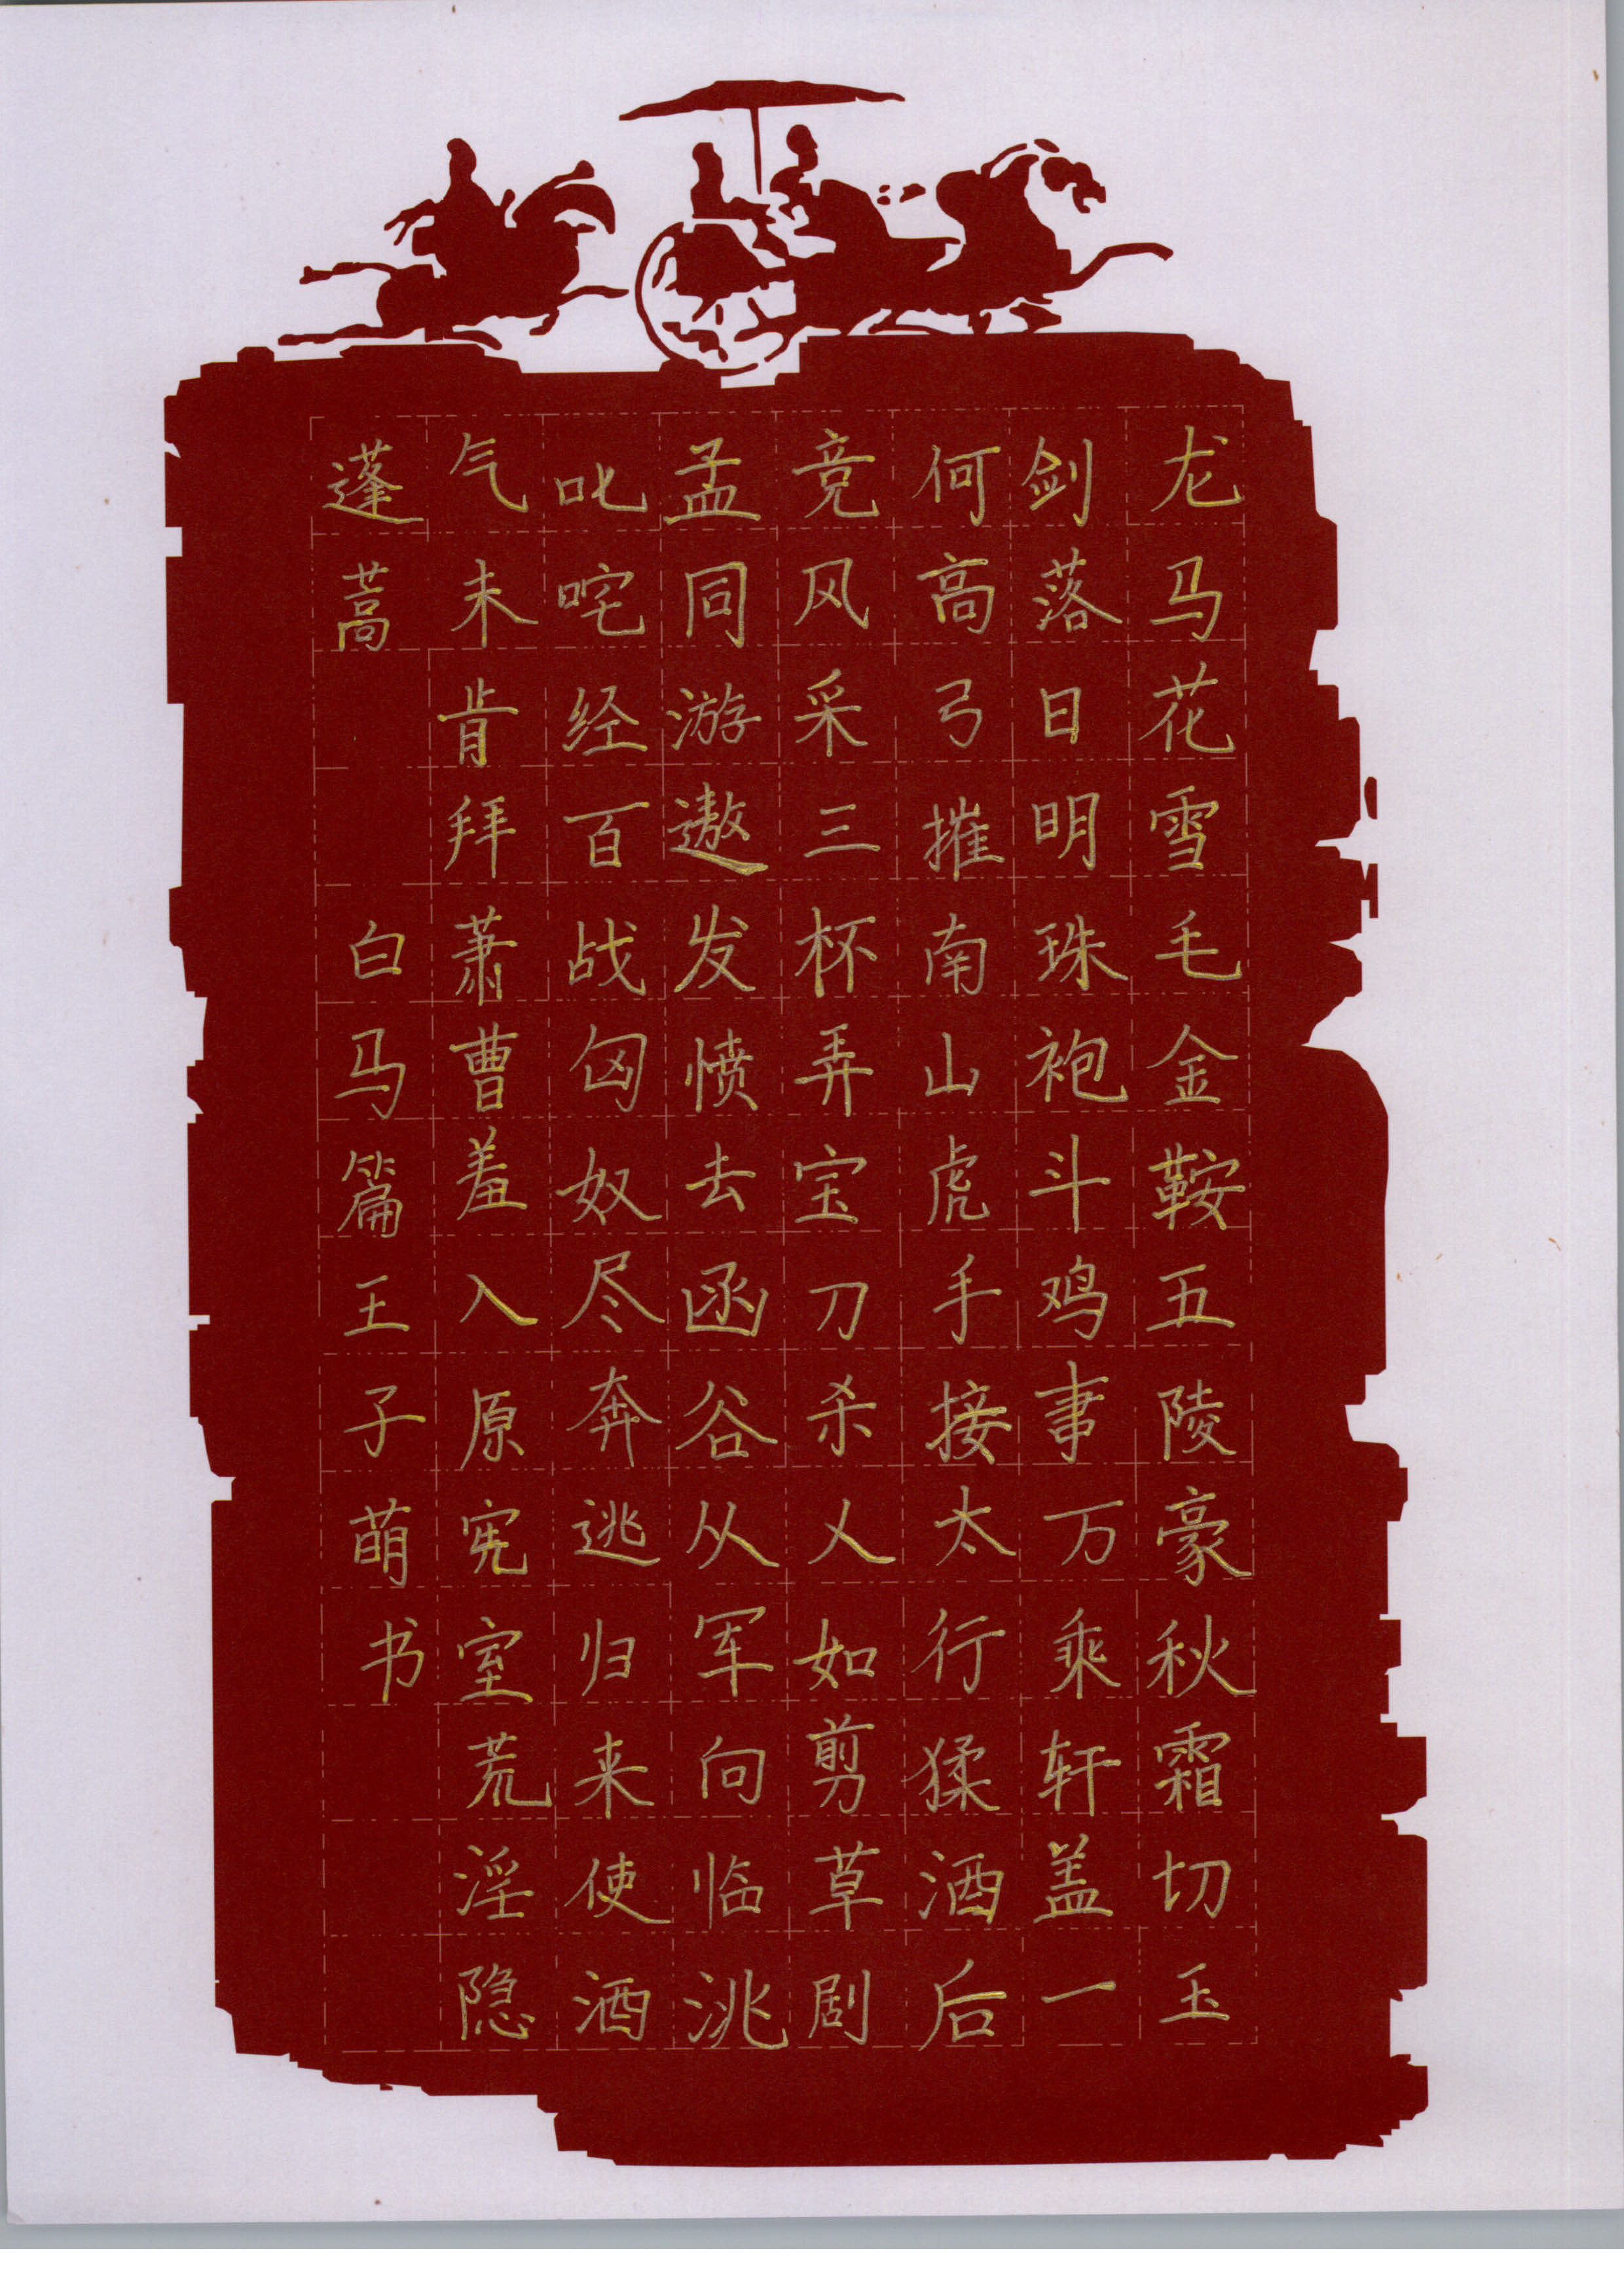 龙马花雪毛金鞍五陵豪秋霜切玉
剑落日明珠袍斗鸡事万乘轩盖一
何高弓摧南山虎手接太行猱酒后
竞风采三杯弄宝刀杀人如剪草剧
孟同游遨发愤去函谷从军向临洮
叱咤经百战匈奴尽奔逃归来使酒
气未肯拜萧曹羞入原宪室荒淫隐
蓬蒿 白马篇王子萌书